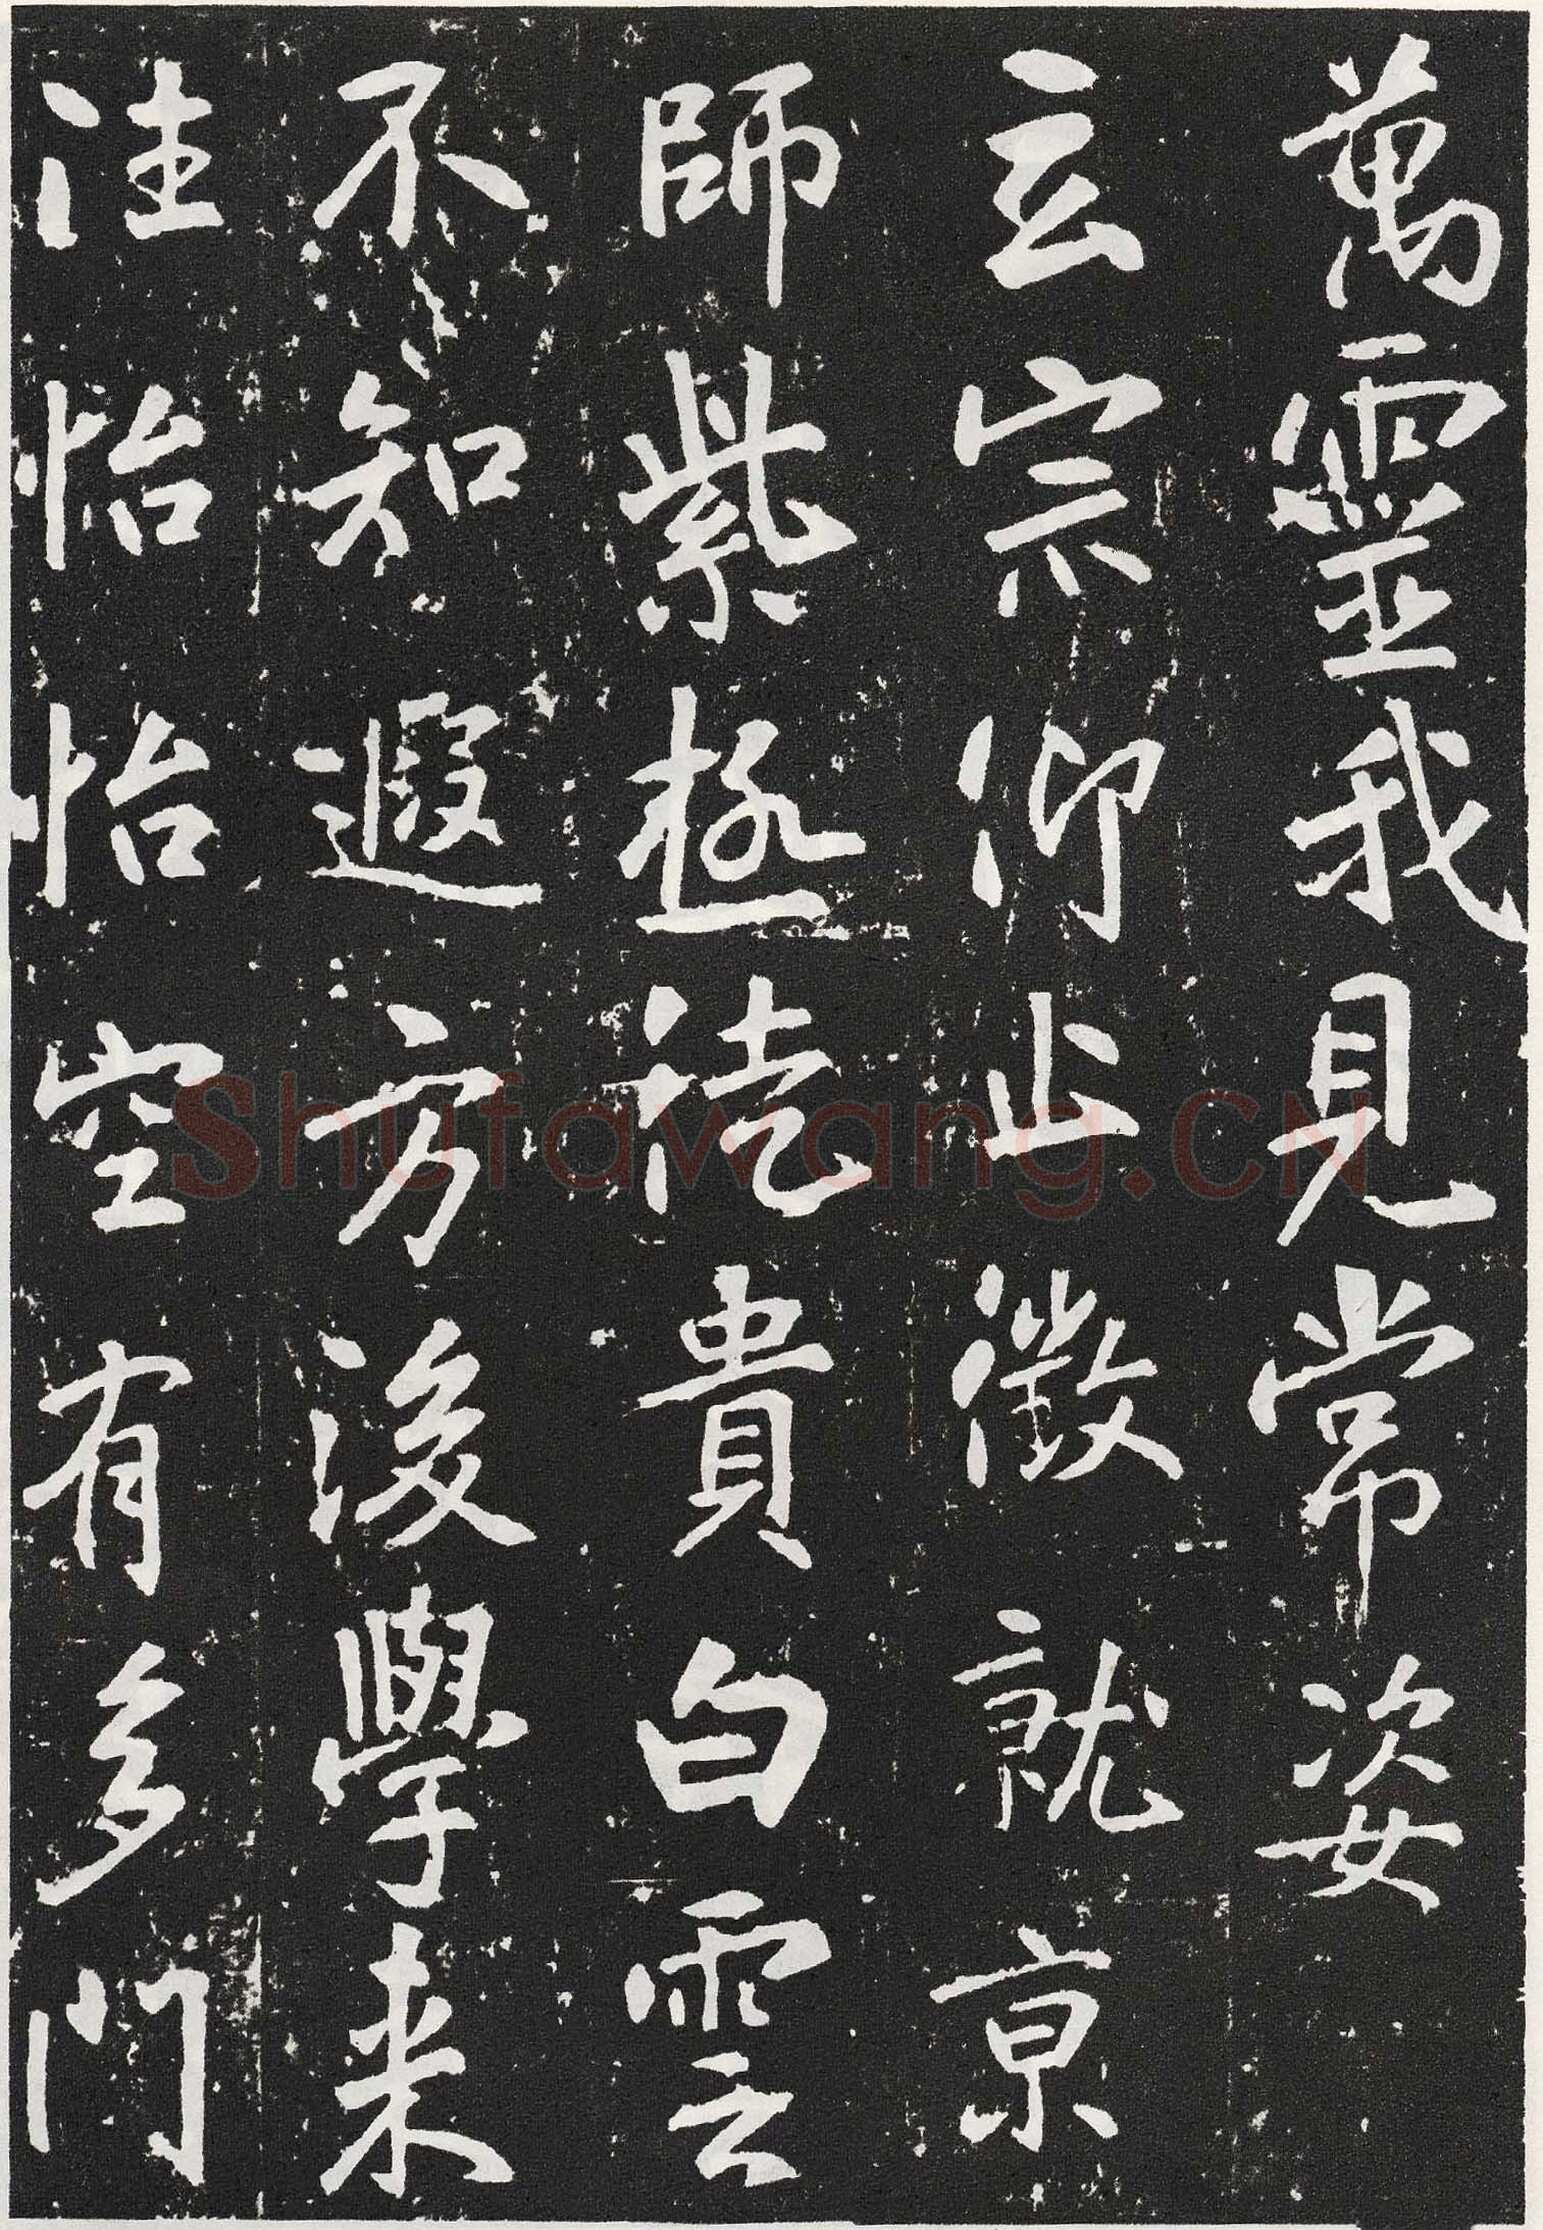 萬靈我見常姿
玄宗仰止徵就京
師紫極徒貴白雲
不知遐方後學来
注怡怡空有多門
Shufawang.CN